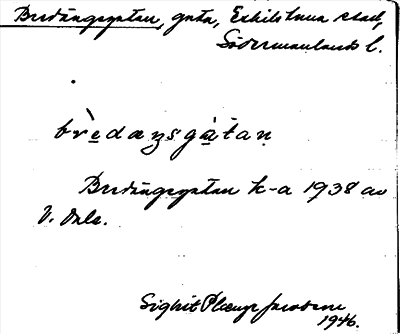 Bredängsgatan, gata, Eskilstuna stad,
Södermanlands l.
brèdæŋsgàtan
Bredängsgatan k-a 1938 av
V. Dale.
Sigbrit Plænge Jacobson
1946.